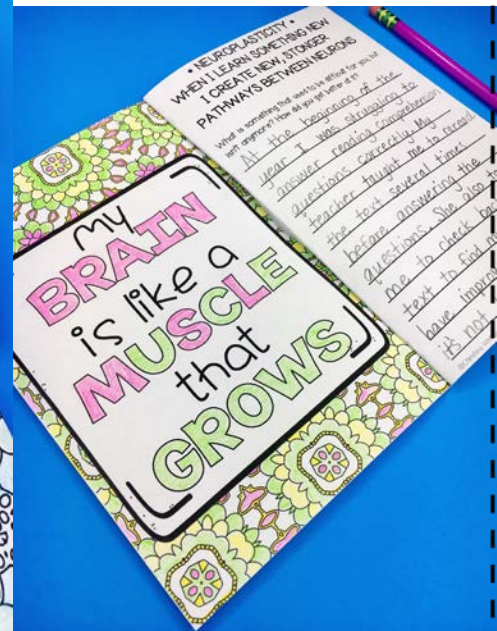 My
BRAIN
is like a
MUSCLE
that
GROWS
• NEUROPLASTICITY •
WHEN I LEARN SOMETHING NEW
I CREATE NEW, STONGER
PATHWAYS BETWEEN NEURONS
What is something that used to be difficult for you, but
isn't anymore? How did you get better at it?
At the beginning of the
year I was struggling to
answer reading comprehension
questions correctly. My
teacher taught me to reread
the text several times
before answering the
questions. She also
me to check
text to find
have
it's not